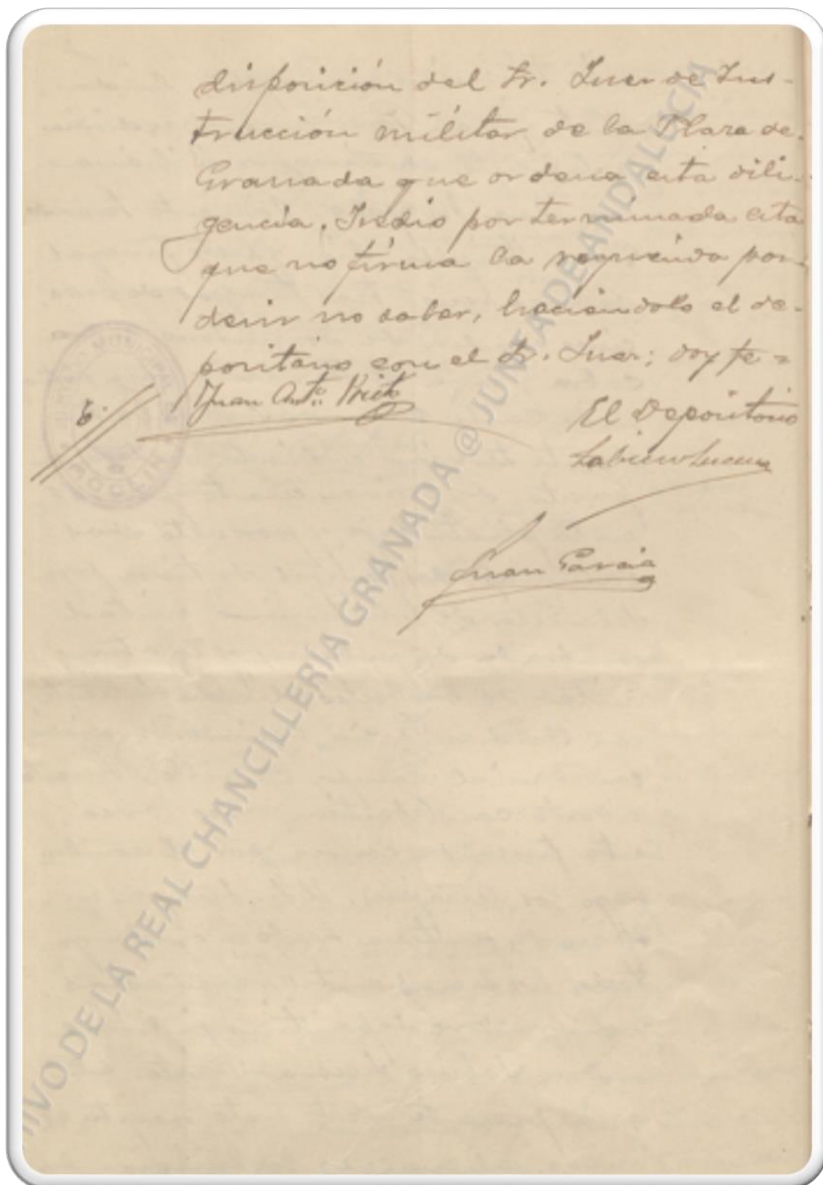 disposición del Sr. Juez de Ins-
trucción militar de la Plaza de
Granada que ordena esta dili-
gencia. Se dio por terminada esta
que no firma la requerida por
decir no saber, haciéndolo el de-
positario con el Sr. Juez; doy fe =
Juan Antº. Prieto
El Depositario
Juan García
MUNICIPAL
ARCHIVO DE LA REAL CHANCILLERÍA GRANADA @ JUNTA DE ANDALUCÍA